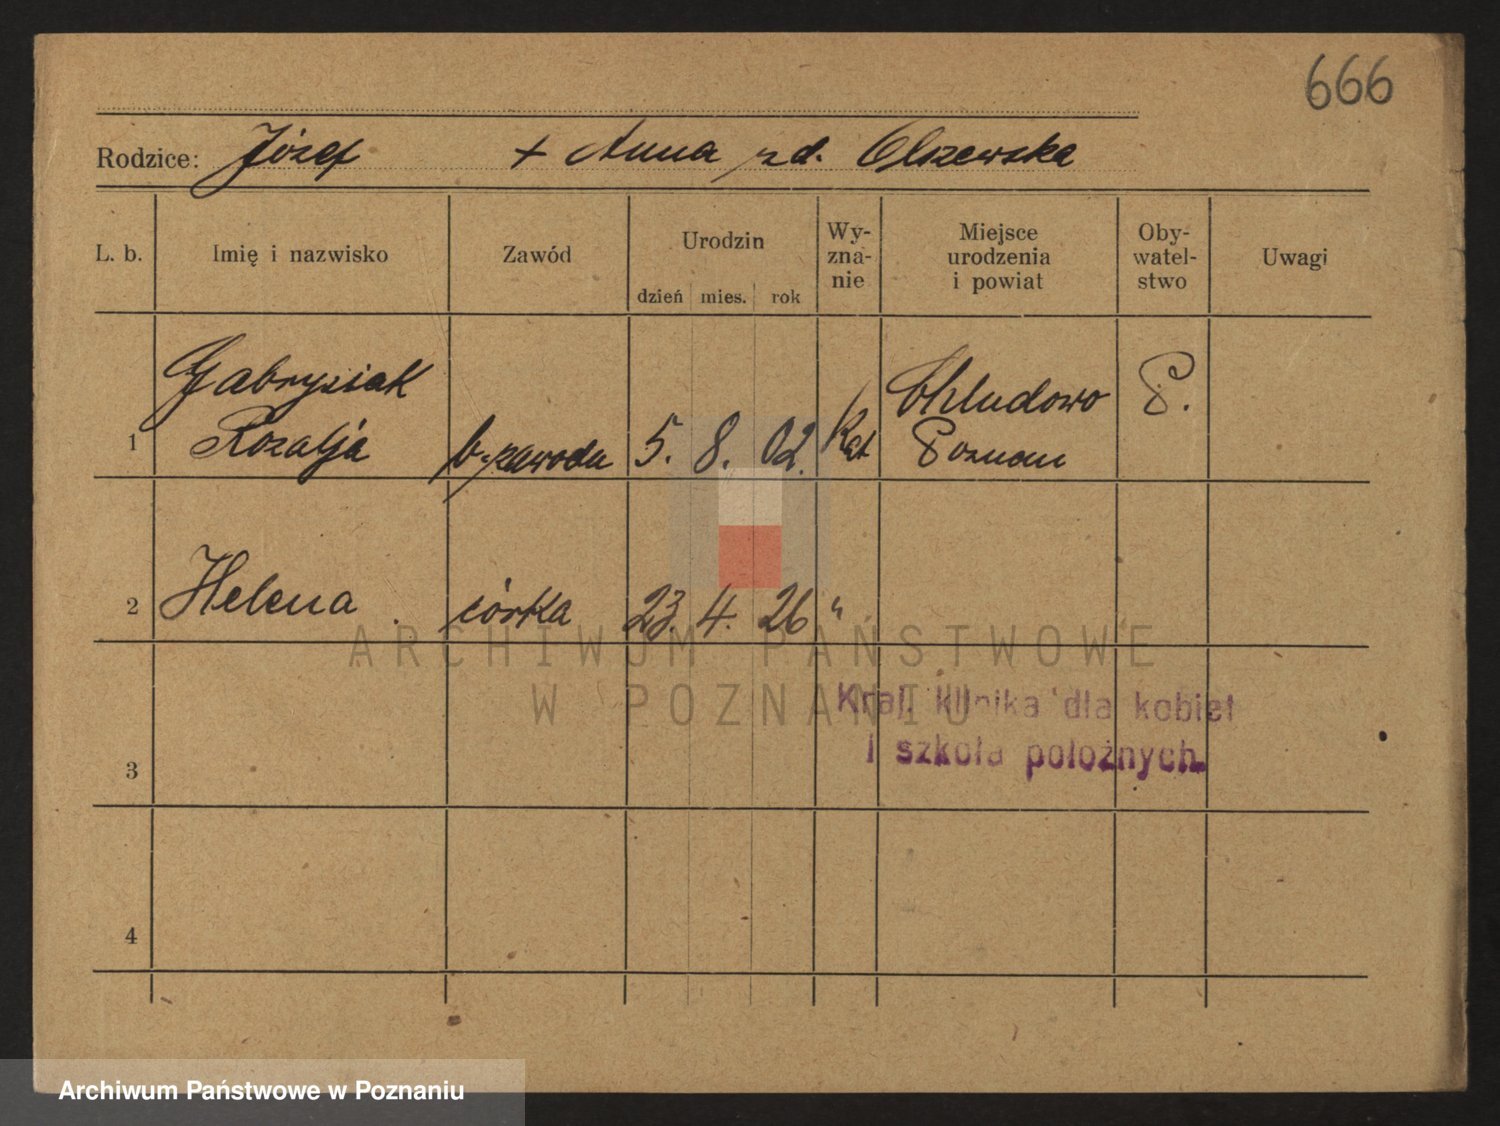 666
Rodzice: Józef + Anna zd. Olszewska
L. b. Imię i nazwisko Zawód Urodzin dzień mies. rok Wy-zna-nie Miejsce urodzenia i powiat Oby-watel-stwo Uwagi
1 Gabrysiak Rozalja b. zawodu 5. 8. 02. Kat Chludowo Poznań P.
2 Helena córka 23. 4. 26 "
ARCHIWUM PAŃSTWOWE
W POZNANIU
Kraj. klinika dla kobiet
i szkoła położnych.
3
4
Archiwum Państwowe w Poznaniu